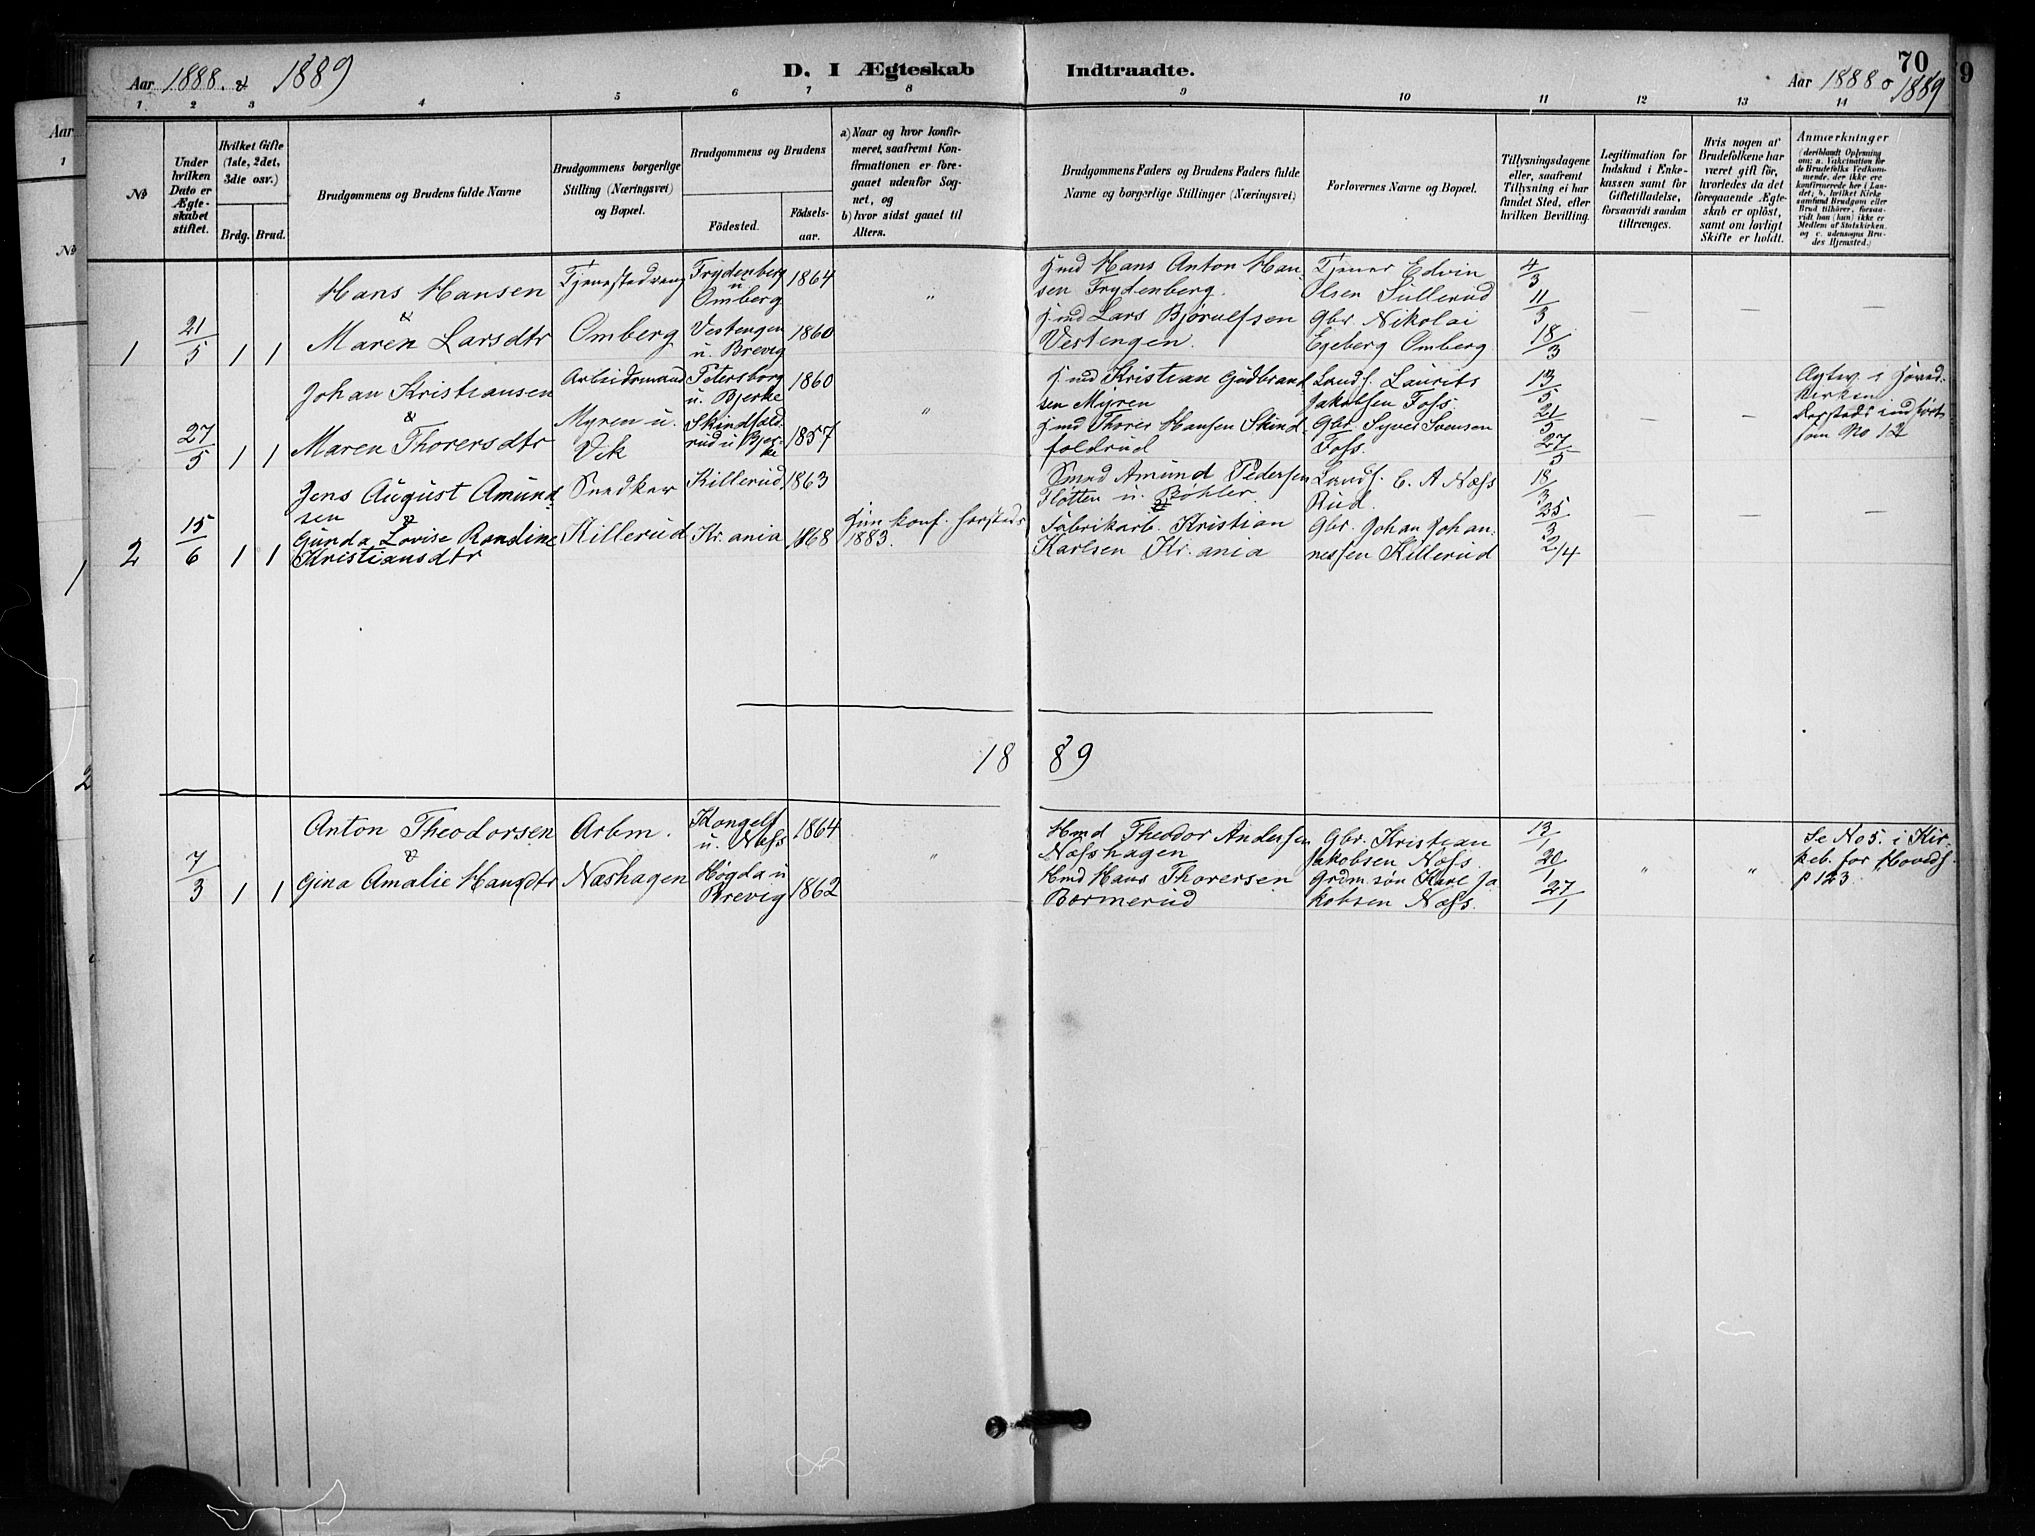 Aar 1888 & 1889
D. I Ægteskab Indtraadte.
70
Aar 1888 o 1889
1. 2 3 4 5 6 7 8 9 10 11 12 13 14
№
Under hvilken Dato er Ægteskabet stiftet.
Hvilket Gifte (1ste, 2det, 3die osv.)
Brdg. Brud.
Brudgommens og Brudens fulde Navne
Brudgommens borgerlige Stilling (Næringsvei) og Bopæl.
Brudgommens og Brudens
Födested.
Födsels-aar.
a) Naar og hvor konfirmeret, saafremt Konfirmationen er foregaaet udenfor Sognet, og
b) hvor sidst gaaet til Alters.
Brudgommens Faders og Brudens Faders fulde Navne og borgerlige Stillinger (Næringsvei)
Forlovernes Navne og Bopæl.
Tillysningsdagene eller, saafremt Tillysning ei har fundet Sted, efter hvilken Bevilling.
Legitimation for Indskud i Enkekassen samt for Giftetilladelse, forsaavidt saadan tiltrænges.
Hvis nogen af Brudefolkene har været gift för, hvorledes da det foregaaende Ægteskab er oplöst, samt om lovligt Skifte er holdt.
Anmærkninger (deriblandt Oplysning om: a. Vakcination for de Brudefolks Vedkommende, der ikke ere konfirmerede her i Landet; b. hvilket Kirkesamfund Brudgom eller Brud tilhörer, forsaavidt han (hun) ikke er Medlem af Statskirken, og c. udensogns Brudes Hjemsted.)
1 21/5 1 1
Hans Hansen
&
Maren Larsdtr
Omberg
Frydenberg u Omberg 1864
Vestengen u. Brevig 1860
"
Hmd Hans Anton Hansen Frydenberg.
Hmd Lars Bjørulfsen Vestengen.
Tjener Edvin Olsen Süllerud
Gbr. Nikolai Egeberg Omberg
4/3
11/3
18/3
27/5 1 1
Johan Kristiansen
&
Maren Thorersdtr
Arbeidsmand
Myren u. Vik
Petersborg u. Bjerke 1860
Skindfoldrud u Bjerke 1857
"
Hmd Kristian Gudbrandsen Myren
Hmd Thorer Hansen Skindfoldrud
Landh. Laurits Jakobsen Foss
Gbr. Syver Svensen Foss.
13/5
21/5
27/5
Agtev. i Hovedkirken
indført som No 12
2 15/6 1 1
Jens August Amundsen
&
Gunda Lovise Randine Kristiansdtr
Snedker
Killerud
Killerud 1863
Kr.ania 1868
Hun konf. hersteds 1883.
Smed Amund Pedersen Flotten u. Bøhler.
Fabrikarb. Kristian Karlsen Kr.ania
Landh. C. A Næss Rud.
Gbr. Johan Johannessen Killerud
18/3
25/3
2/4
1889
7/3 1 1
Anton Theodorsen
&
Gina Amalie Hansdtr
Arbm.
Næshagen
Kongelf u. Næss 1864
Høgda u Brevig 1862
"
Hmd Theodor Andersen Næsshagen
Hmd Hans Thorersen Bormerud
Gbr. Kristian Jakobsen Næss.
Grdm. søn Karl Jakobsen Næss.
13/1
20/1
27/1
"
"
Se No 5. i Kirkeb. for Hoveds. p 123